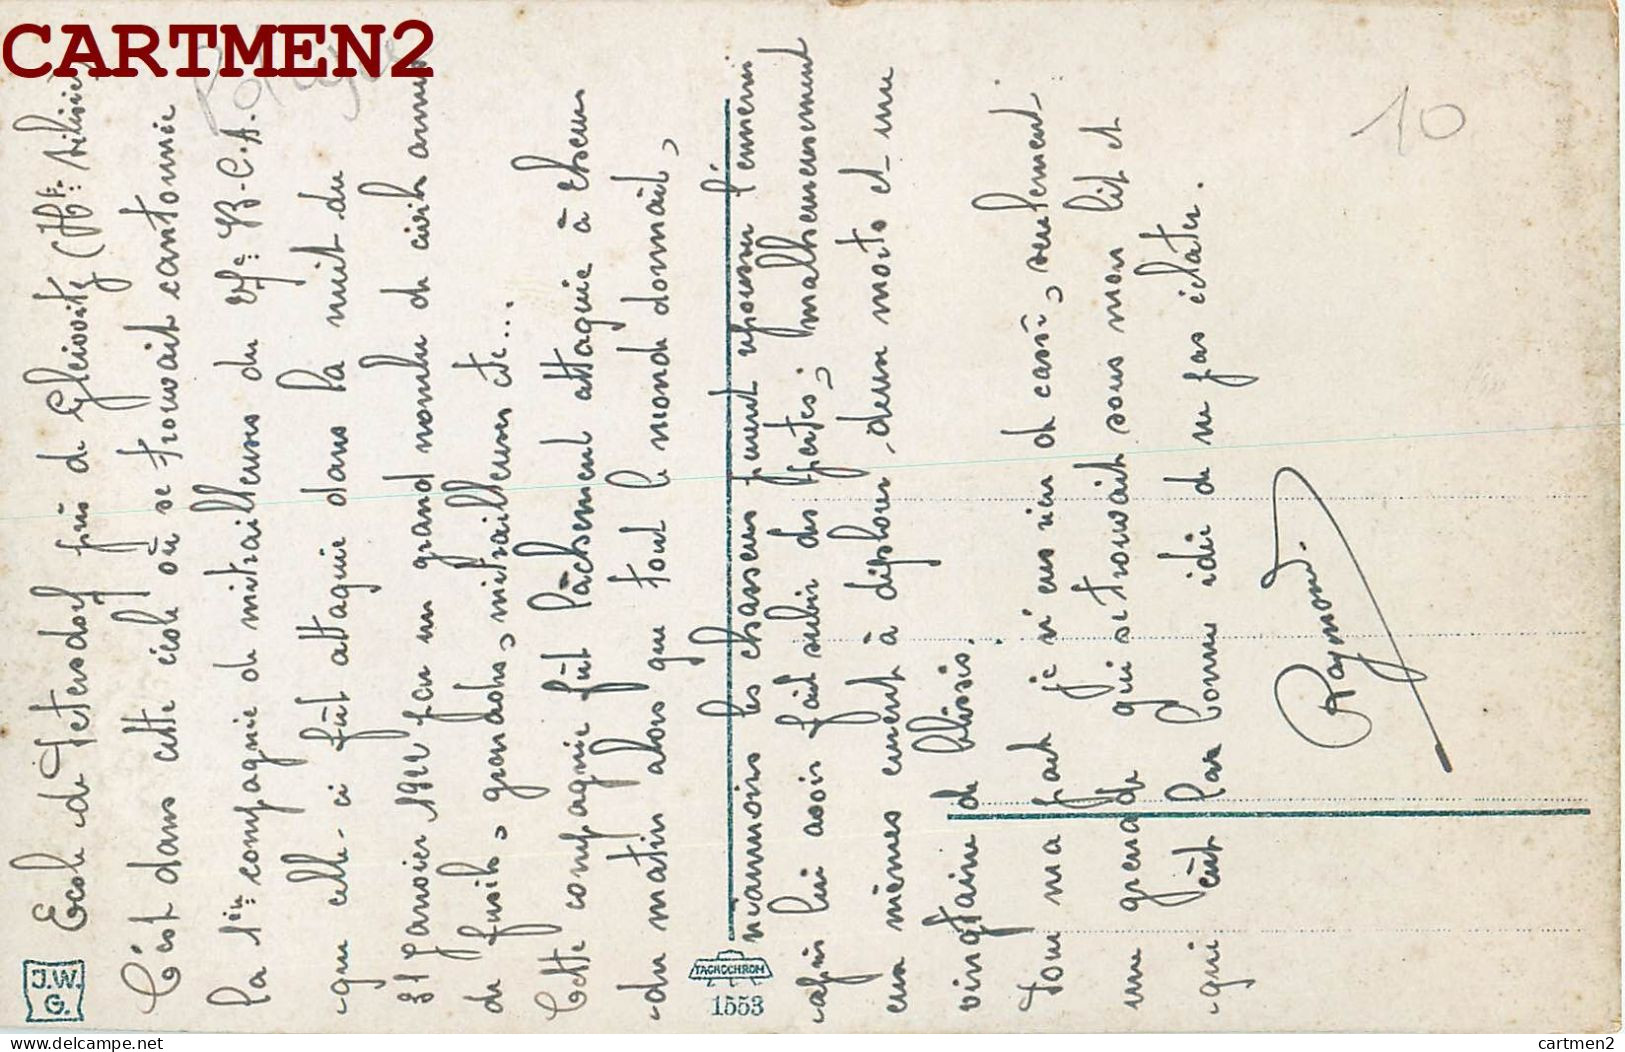 CARTMEN2
Pologne
10
Ecole de Petersdorf près de Gleiwitz (Hte: Silésie)
C'est dans cette école où se trouvait cantonnie
la 1ère: compagnie de mitrailleuses du B.C.A.
que celle-ci fût attaquée dans la nuit du
31 Janvier 1922 par un grand nombre de civils armés
de fusils, grenades, mitrailleuses etc...
Cette compagnie fût lâchement attaquée à 3 heures
du matin alors que tout le monde dormait,
néanmoins les chasseurs purent repousser l'ennemi
après lui avoir fait subir des pertes; malheureusement
eux mêmes eurent à déplorer deux morts et une
vingtaine de blessés.
Pour ma part je n'eus rien de cassé, seulement
une grenade qui se trouvait sous mon lit et
qui eût la bonne idée de ne pas éclater.
Raymond.
J.W.
G.
TACHOCHROM
1553
www.delcampe.net
cartmen2